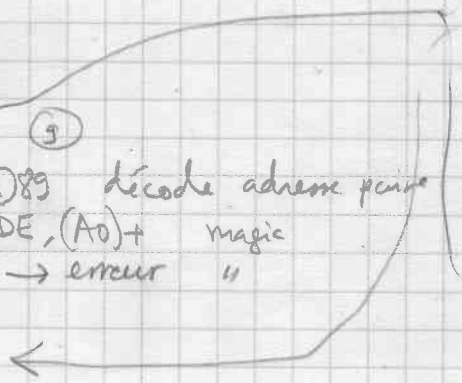 9
)89 décode adresse paire
DE, (A0)+ magic
→ erreur "